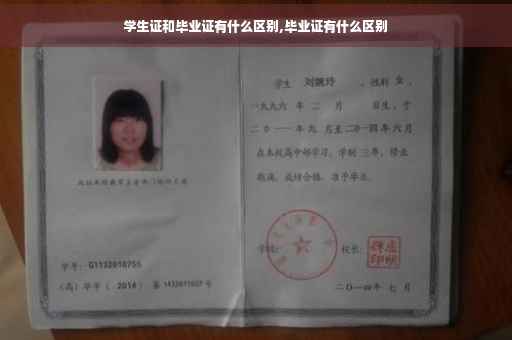 学生证和毕业证有什么区别,毕业证有什么区别
学生 刘婉玲 ，性别 女，
一九九六 年 二 月 日生，于
二〇一一 年 九 月至 二〇一四 年 六 月
在本校高中部学习，学制 三年，修业
期满，成绩合格，准予毕业。
学校： 校长：
二〇一四年 七 月
学号： G1132010755
(高) 毕字 ( 2014 ) 第 1432011027 号